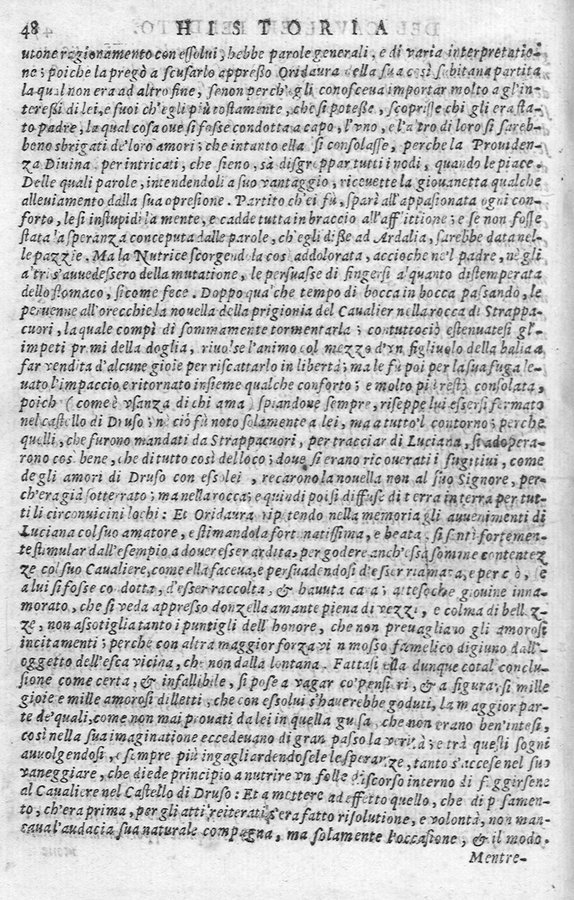 48 HISTORIA
utone ragionamento con essolui, hebbe parole generali, e di varia interpretatio-
ne; poiche la pregò a scusarlo appreßo Oridaura della sua così subitana partita
la qual non era ad altro fine, se non perch'egli conosceva importar molto a gl'in-
tereßi di lei, e fuoi ch'egli più tostamente, che si poteße, scoprisse chi gli era sta-
to padre, la qual cosa oue si fosse condotta a capo, l'vno, e l'a tro di loro si sareb-
beno sbrigati de' loro amori; che intanto ella si consolasse, perche la Providen-
za Divina per intricati, che sieno, sà disgroppar tutti i nodi, quando le piace.
Delle quali parole, intendendoli a suo vantaggio, ricevette la giovanetta qualche
alleviamento dalla sua opresione. Partito ch'ei fù, sparì all'appasionata ogni con-
forto, le si instupidì la mente, e cadde tutta in braccio all'afflittione; e se non fosse
stata la speranza conceputa dalle parole, ch'egli diße ad Ardalia, sarebbe data nel-
le pazzie. Ma la Nutrice scorgendola così addolorata, accioche ne'l padre, nè gli
a'tri s'auvedessero della mutatione, le persuasse di fingersi a'quanto distemperata
dello stomaco, sicome fece. Doppo qua'che tempo di bocca in bocca passando, le
peruenne all'orecchie la novella della prigionia del Cavalier nella rocca di Strappa-
cuori, la quale compì di sommamente tormentarla; contuttociò estenuatesi gl'
impeti primi della doglia, rivolse l'animo col mezzo d'vn figliuolo della balia a
far vendita d'alcune gioie per riscattarlo in libertà; ma le fù poi per la sua fuga le-
uato l'impaccio, e ritornato insieme qualche conforto; e molto più restò consolata,
poich (come è vsanza di chi ama) spiandone sempre, riseppe lui essersi fermato
nel castello di Druso; nè ciò fù noto solamente a lei, ma a tutto'l contorno; perche
quelli, che furono mandati da Strappacuori, per tracciar di Luciana, si adopera-
rono cos bene, che di tutto così del loco; doue si erano ricouerati i fugitiui, come
degli amori di Druso con essolei, recarono la novella non al suo Signore, per-
ch'era già sotterrato; ma nella rocca; e quindi poi si diffuse di terra in terra per tut-
ti li circonvicini lochi: Et Oridaura ripetendo nella memoria gli auvenimenti di
Luciana col suo amatore, e stimandola fortunatissima, e beata, si sentì fortemen-
te stimular dall'esempio a douer esser ardita, per godere anch'essa somme contentez
ze col suo Cavaliere, come ella faceua, e persuadendosi d'esser riamata, e per c ò, se
a lui si fosse co dotta, d'esser raccolta, & hauuta cara; attesoche giouine inna-
morato, che si veda appresso donzella amante piena di vezzi, e colma di bellez-
ze, non assotiglia tanto i puntigli dell'honore, che non prevagliano gli amorosi
incitamenti; perche con altra maggior forza vien mosso famelico digiuno dall'
oggetto dell'esca vicina, che non dalla lontana. Fattasi ella dunque cotal conclu-
sione come certa, & infallibile, si pose a vagar co'pensieri, & a figurarsi mille
gioie e mille amorosi dilletti, che con essolui s'hauerebbe goduti, la maggior par-
te de'quali, come non mai prouati da lei in quella guisa, che non erano ben'intesi,
così nella sua imaginatione eccedevano di gran passo la verità; e trà questi sogni
auuolgendosi, e sempre più ingagliardendosele le speranze, tanto s'accese nel suo
vaneggiare, che diede principio a nutrire vn folle discorso interno di fuggirsene
al Cavaliere nel Castello di Druso: Et a mettere ad effetto quello, che di p samen-
to, ch'era prima, per gli atti reiterati s'era fatto risolutione, e volontà, non man-
caua l'audacia sua naturale compagna, ma solamente l'occasione, & il modo.
Mentre-